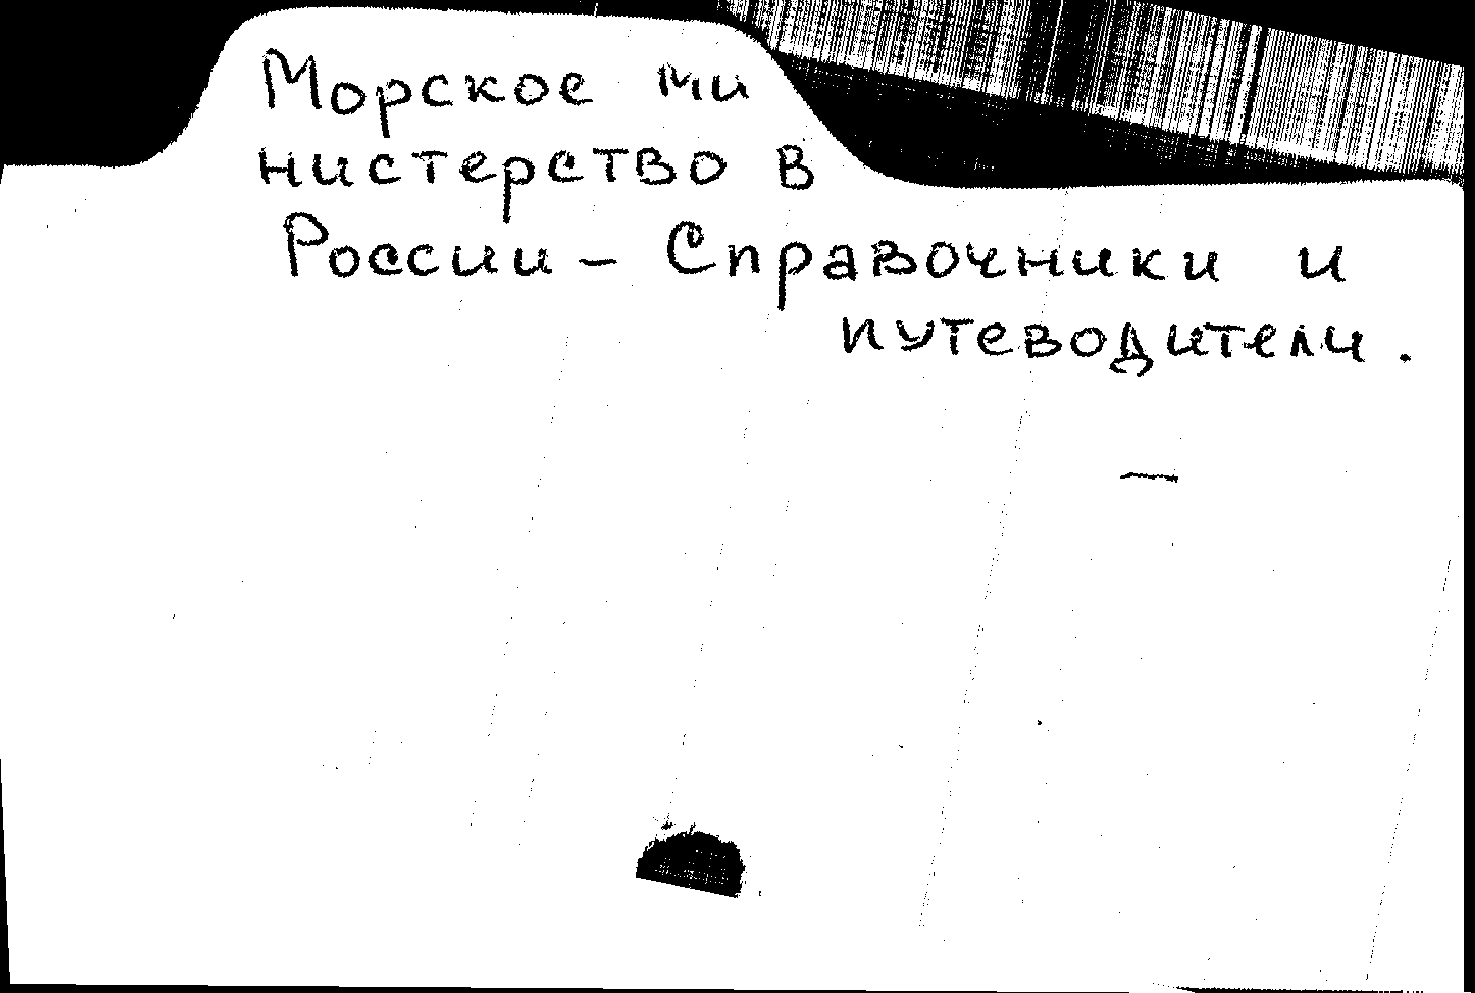 Морское ми
нистерство в
России - Справочники и
путеводители.